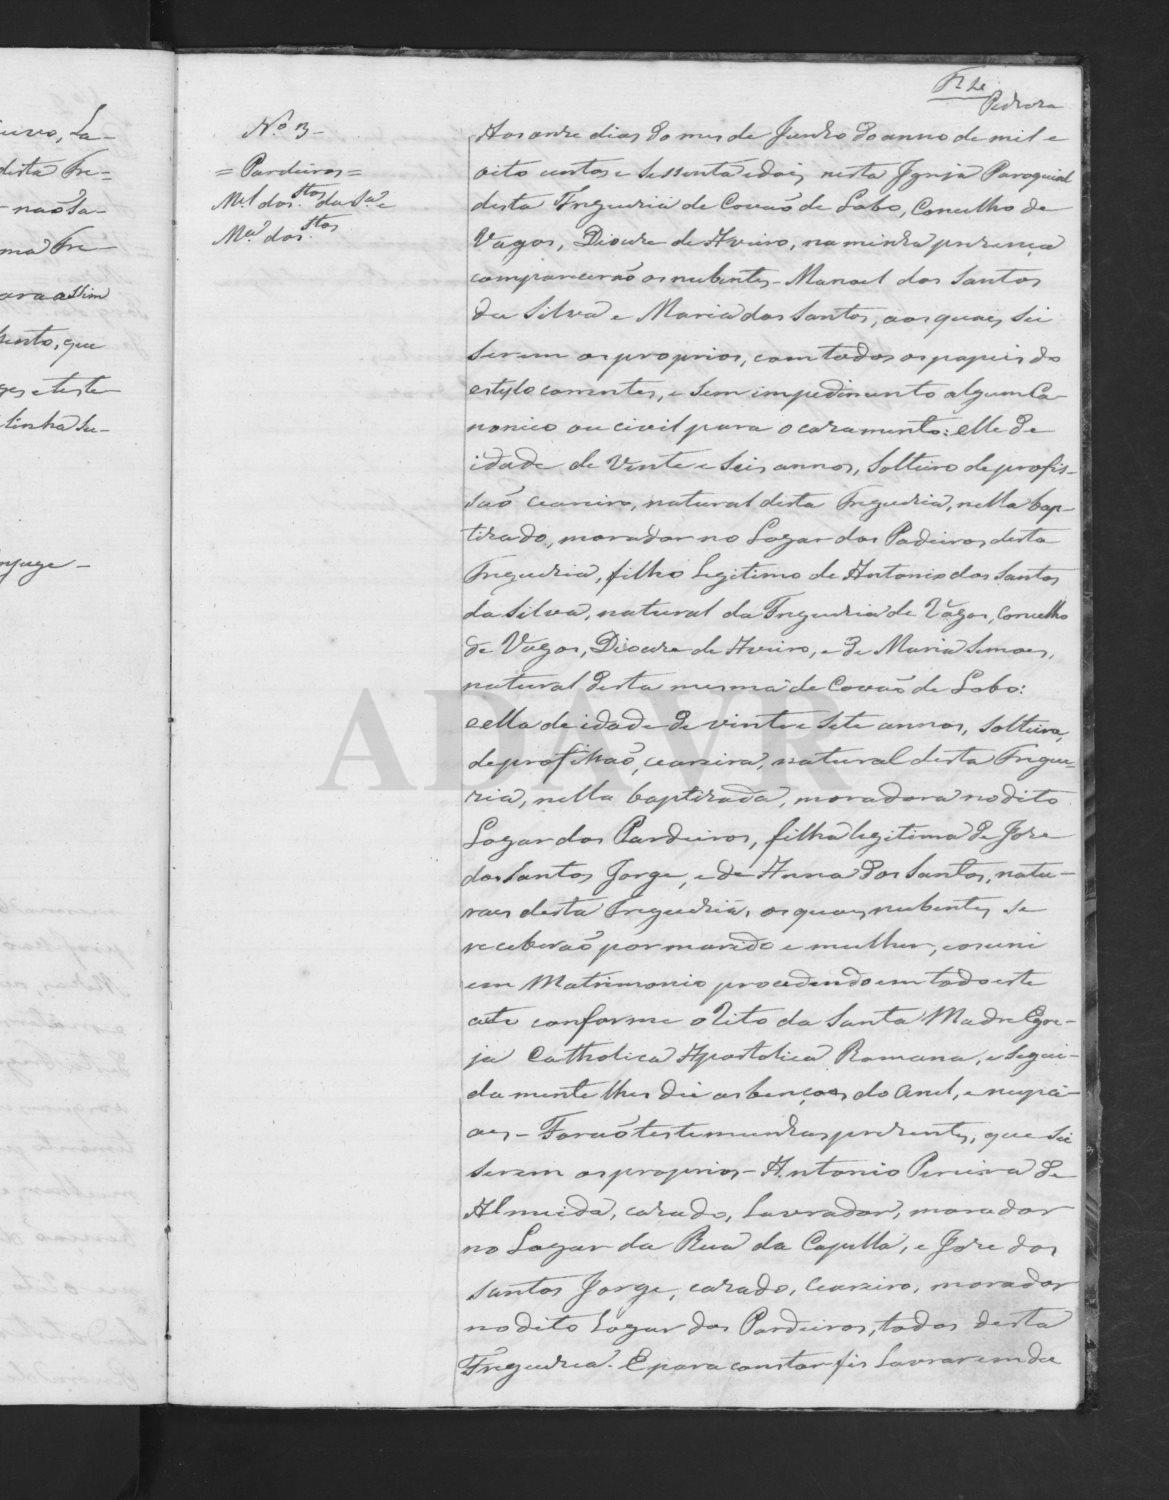 uro, La-
desta Fre=
não sa-
ma Fre-
para assim
mento, que
ges e teste
tinha su-
njuge -
Pedroza
N.º 13-
= Pardeiros=
M.el dos S.tos da S.a e
M.a dos S.tos
Aos onze dias do mes de Junho do anno de mil e
oito centos e sessenta e dois, nesta Igreja Paroquial
desta Freguezia de Covaõ de Lobo, Concelho de
Vagos, Diocese de Aveiro, na minha presença
comparecerão os nubentes - Manoel dos Santos
da Silva e Maria dos Santos, aos quaes sei
serem os proprios, com todos os papeis do
estylo correntes, e sem impedimento algum Ca-
nonico ou civil para o cazamento: elle de
idade de Vinte e Seis annos, Solteiro de profis-
saõ ceareiro, natural desta Freguezia, nella bap-
tizado, morador no Logar dos Padeiros desta
Freguezia, filho legitimo de Antonio dos Santos
da Silva, natural da Freguezia de Vágos, Concelho
de Vagos, Diocese de Aveiro, e de Maria Simoes,
natural desta mesma de Covaõ de Lobo:
e ella de idade de vinte e Sete annos, Solteira,
de profissaõ, ceareira, natural desta Fregue-
zia, nella baptizada, moradora no dito
Logar dos Pardeiros, filha legitima de Jose
dos Santos Jorge, e de Anna dos Santos, natu-
raes desta Freguezia, os quaes nubentes se
receberaõ por marido e mulher, e os uni
em Matrimonio procedendo em todo este
acto conforme o Rito da Santa Madre Egre-
ja Catholica Apostolica Romana, e Segui-
damente lhes dei as bençoes do Anel, e nupci-
aes - Foraõ testemunhas prezentes, que sei
serem os proprios - Antonio Pereira de
Almeida, cazado, Lavrador, morador
no Logar da Rua da Capella, e Jose dos
Santos Jorge, cazado, Ceareiro, morador
no dito Logar dos Pardeiros, todos desta
Freguezia. E para constar fis Lavrar em du
ADAVR